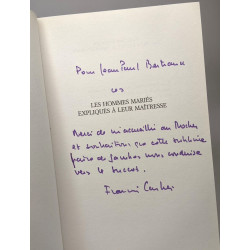 Pour Jean Paul Bertrand
ces
LES HOMMES MARIÉS
EXPLIQUÉS À LEUR MAÎTRESSE
Merci de m'accueillir au Rocher
et souhaitons que cette sublime
paire de jambes nous conduise
vers le succès.